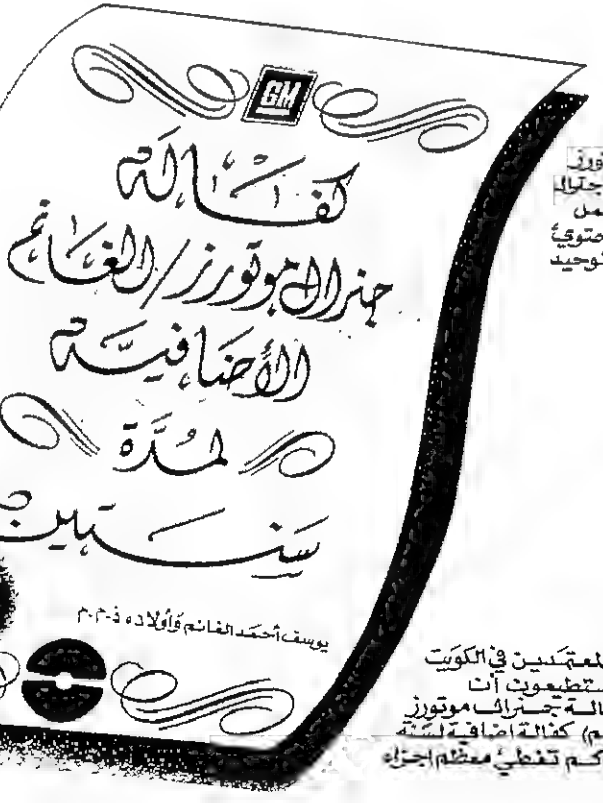 GM
كفالة
جنرال موتورز/الغانم
الأضافية
لمدّة
سنتين
يوسف أحمد الغانم وأولاده ذ.م.م
جنرال
توحيد
المعتمدين في الكويت
ستطيعون أن
الة جنرال موتورز
م) كفالة اضافية لسنة
كم تغطي معظم اجزاء